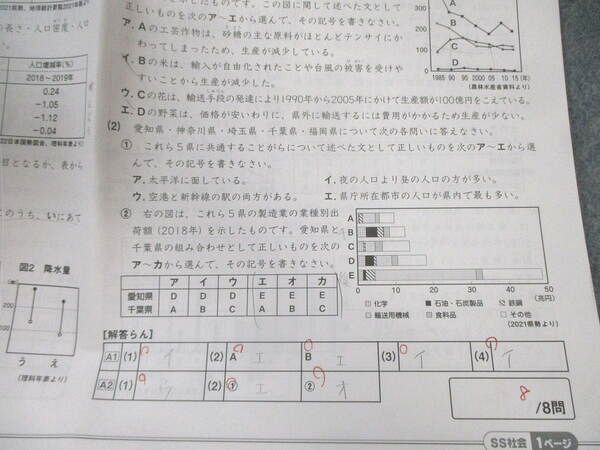 示したものです。この図に関して述べた文として
正しいものを次のア～エから選んで、その記号を書きなさい。
ア. Aの工芸作物は、砂糖の主な原料がほとんどテンサイにか
わってしまったため、生産が減少している。
イ. Bの米は、輸入が自由化されたことや台風の被害を受けや
すいことから生産が減少した。
ウ. Cの花は、輸送手段の発達により1990年から2005年にかけて生産額が100億円をこえている。
エ. Dの野菜は、価格が安いわりに、県外に輸送するには費用がかかるため生産が少ない。
(2) 愛知県・神奈川県・埼玉県・千葉県・福岡県について次の各問いに答えなさい。
① これら5県に共通することがらについて述べた文として正しいものを次のア～エから選
んで、その記号を書きなさい。
ア. 太平洋に面している。
イ. 夜の人口より昼の人口の方が多い。
ウ. 空港と新幹線の駅の両方がある。
エ. 県庁所在都市の人口が県内で最も多い。
② 右の図は、これら5県の製造業の業種別出
荷額(2018年)を示したものです。愛知県と
千葉県の組み合わせとして正しいものを次の
ア～カから選んで、その記号を書きなさい。
ア イ ウ エ オ カ
愛知県 D D D E E E
千葉県 A B C A B C
A
B
C
D
E
0 10 20 30 40 50
(兆円)
化学 石油・石炭製品 鉄鋼
輸送用機械 食料品 その他
(2021県勢より)
200
100
B
A
C
D
0
1985 90 95 2000 05 10 15(年)
(農林水産省資料より)
人口増減率(%)
2018～2019年
0.24
-1.05
-1.12
-0.04
図2 降水量
200
100
う え
(理科年表より)
[解答らん]
A1 (1) イ (2) A エ B エ (3) イ (4) イ
A2 (1) ウ (2) ① エ ② オ
8
/8問
SS社会 1ページ